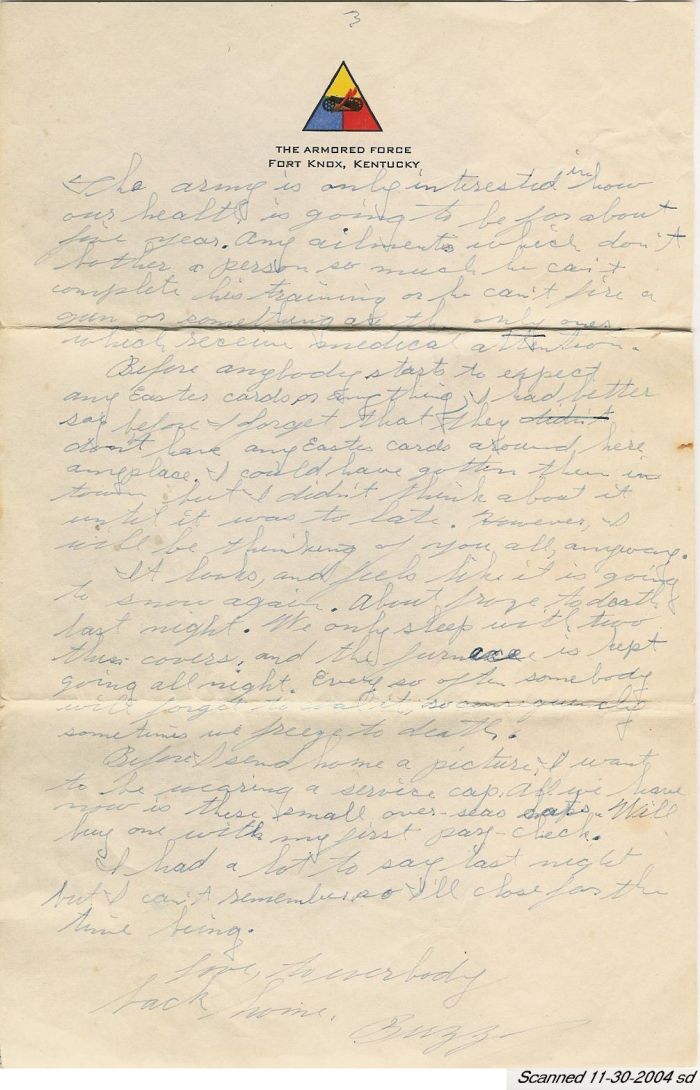 3
THE ARMORED FORCE
FORT KNOX, KENTUCKY
The army is only interested in how
our health is going to be for about
five year. Any ailments which don't
bother a person so much he can't
complete his training or he can't fire a
gun or something are the only ones
which receive medical attention.
Before anybody starts to expect
any Easter cards or anything, I had better
say before I forget that they didn't
don't have any Easter cards around here
anyplace. I could have gotten them in
town but I didn't think about it
until it was to late. However, I
will be thinking of you all, anyway.
It looks, and feels like it is going
to snow again. About froze to death
last night. We only sleep with two
thin covers, and the furnace is kept
going all night. Every so often somebody
will forget to it, so consequently
sometimes we freeze to death.
Before I send home a picture, I want
to be wearing a service cap. All we have
now is these small over-seas caps. Will
buy one with my first pay-check.
I had a lot to say last night
but I can't remember so I'll close for the
time being.
Love, to everbody
back home.
Buzz
Scanned 11-30-2004 sd